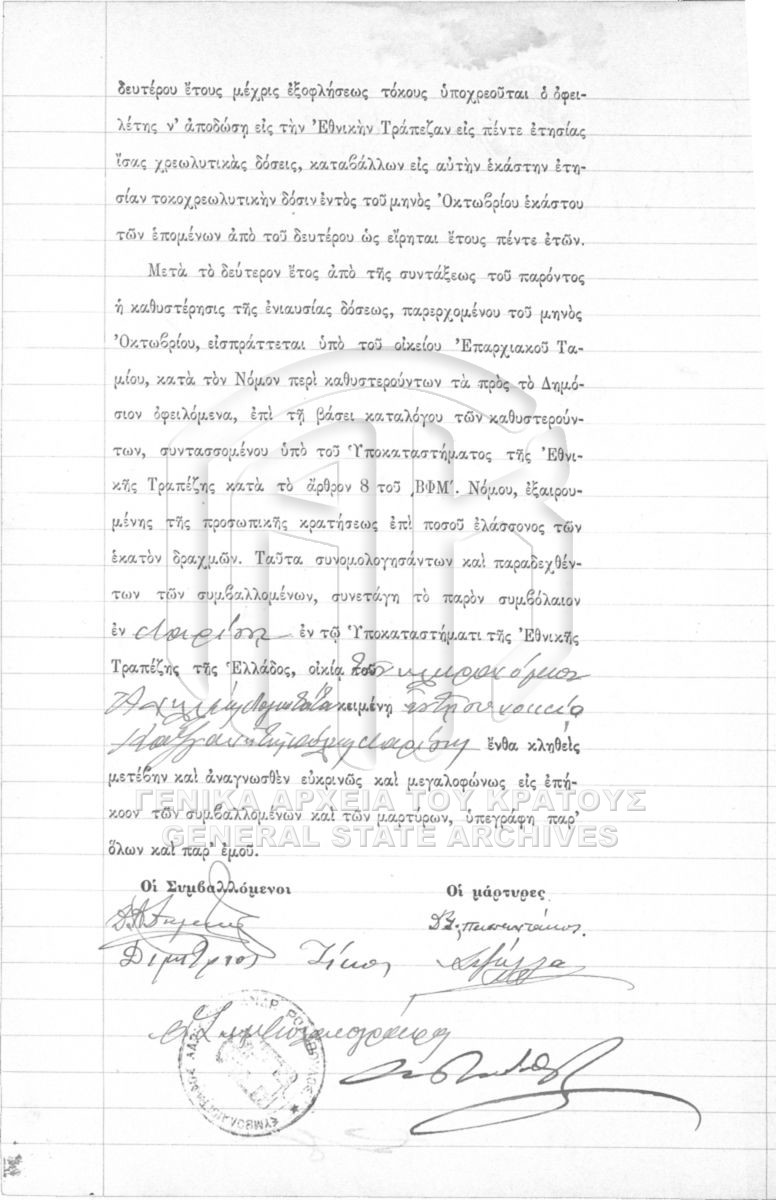 δευτέρου ἔτους μέχρις ἐξοφλήσεως τόκους ὑποχρεοῦται ὁ ὀφει-
λέτης ν' ἀποδώσῃ εἰς τὴν Ἐθνικὴν Τράπεζαν εἰς πέντε ἐτησίας
ἴσας χρεωλυτικὰς δόσεις, καταβάλλων εἰς αὐτὴν ἑκάστην ἐτη-
σίαν τοκοχρεωλυτικὴν δόσιν ἐντὸς τοῦ μηνὸς Ὀκτωβρίου ἑκάστου
τῶν ἑπομένων ἀπὸ τοῦ δευτέρου ὡς εἴρηται ἔτους πέντε ἐτῶν.
Μετὰ τὸ δεύτερον ἔτος ἀπὸ τῆς συντάξεως τοῦ παρόντος
ἡ καθυστέρησις τῆς ἐνιαυσίας δόσεως, παρερχομένου τοῦ μηνὸς
Ὀκτωβρίου, εἰσπράττεται ὑπὸ τοῦ οἰκείου Ἐπαρχιακοῦ Τα-
μίου, κατὰ τὸν Νόμον περὶ καθυστερούντων τὰ πρὸς τὸ Δημό-
σιον ὀφειλόμενα, ἐπὶ τῇ βάσει καταλόγου τῶν καθυστερούν-
των, συντασσομένου ὑπὸ τοῦ Ὑποκαταστήματος τῆς Ἐθνι-
κῆς Τραπέζης κατὰ τὸ ἄρθρον 8 τοῦ ͵ΒΦΜ΄. Νόμου, ἐξαιρου-
μένης τῆς προσωπικῆς κρατήσεως ἐπὶ ποσοῦ ἐλάσσονος τῶν
ἑκατὸν δραχμῶν. Ταῦτα συνομολογησάντων καὶ παραδεχθέν-
των τῶν συμβαλλομένων, συνετάγη τὸ παρὸν συμβόλαιον
ἐν Λαρίσῃ ἐν τῷ Ὑποκαταστήματι τῆς Ἐθνικῆς
Τραπέζης τῆς Ἑλλάδος, οἰκίᾳ τοῦ κληρονόμων
κειμένῃ ἐν τῇ συνοικίᾳ
Λαρίσης ἔνθα κληθεὶς
μετέβην καὶ ἀναγνωσθὲν εὐκρινῶς καὶ μεγαλοφώνως εἰς ἐπή-
κοον τῶν συμβαλλομένων καὶ τῶν μαρτύρων, ὑπεγράφη παρ'
ὅλων καὶ παρ' ἐμοῦ.
ΓΕΝΙΚΑ ΑΡΧΕΙΑ ΤΟΥ ΚΡΑΤΟΥΣ
GENERAL STATE ARCHIVES
Οἱ Συμβαλλόμενοι Οἱ μάρτυρες
Δημήτριος
Ὁ Συμβολαιογράφος